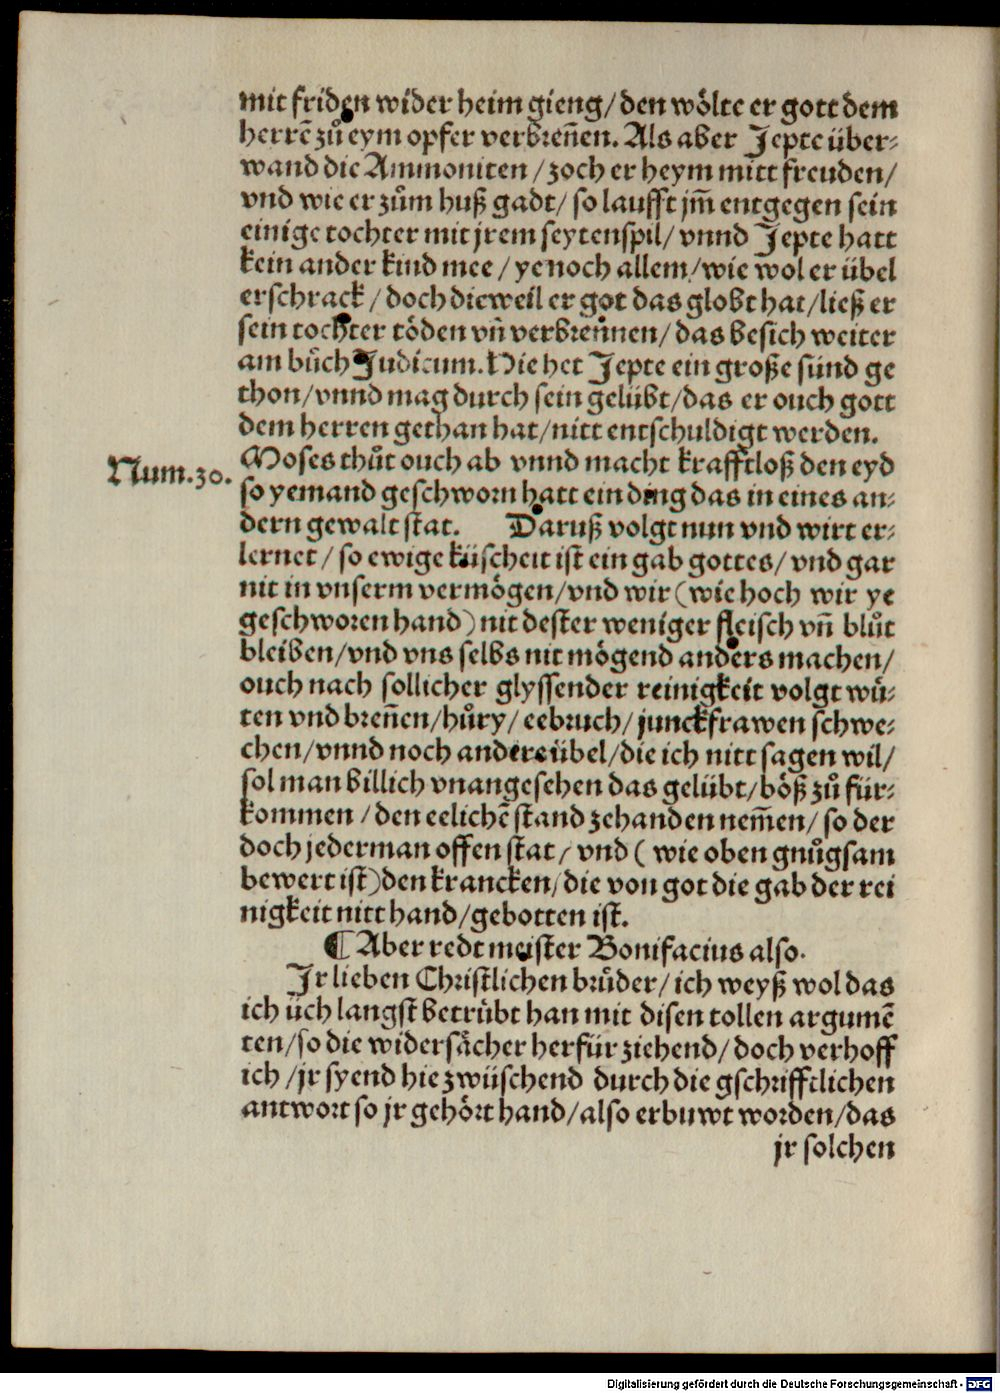 mit friden wider heim gieng/ den wölte er gott dem
herrē zů eym opfer verbreñen. Als aber Jepte über-
wand die Ammoniten / zoch er heym mitt freuden/
vnd wie er zům huß gadt/ so laufft jm̄ entgegen sein
einige tochter mit jrem seytenspil/ vnnd Jepte hatt
kein ander kind mee / ye noch allem/ wie wol er übel
erschrack / doch dieweil er got das globt hat/ ließ er
sein tochter töden vñ verbrennen/ das besich weiter
am bůch Judicum. Hie het Jepte ein große sünd ge
thon/ vnnd mag durch sein gelübt/ das er ouch gott
dem herren gethan hat/ nitt entschuldigt werden.
Num.30.
Moses thůt ouch ab vnnd macht krafftloß den eyd
so yemand geschworn hatt ein ding das in eines an-
dern gewalt stat. Daruß volgt nun vnd wirt er-
lernet / so ewige küscheit ist ein gab gottes/ vnd gar
nit in vnserm vermögen/ vnd wir (wie hoch wir ye
geschworen hand) nit dester weniger fleisch vñ blůt
bleiben/ vnd vns selbs nit mögend anders machen/
ouch nach sollicher glyssender reinigkeit volgt wü-
ten vnd breñen/ hůry/ eebruch/ junckfrawen schwe-
chen/ vnnd noch andere übel/ die ich nitt sagen wil/
sol man billich vnangesehen das gelübt/ böß zů für-
kommen / den eelichē stand zehanden nem̄en/ so der
doch jederman offen stat/ vnd ( wie oben gnůgsam
bewert ist) den krancken/ die von got die gab der rei
nigkeit nitt hand/ gebotten ist.
¶ Aber redt meister Bonifacius also.
Jr lieben Christlichen brüder/ ich weyß wol das
ich üch langst betrübt han mit disen tollen argumē
ten/ so die widersächer herfür ziehend/ doch verhoff
ich / jr syend hie zwüschend durch die gschrifftlichen
antwort so jr gehört hand/ also erbuwt worden/ das
jr solchen
Digitalisierung gefördert durch die Deutsche Forschungsgemeinschaft - DFG